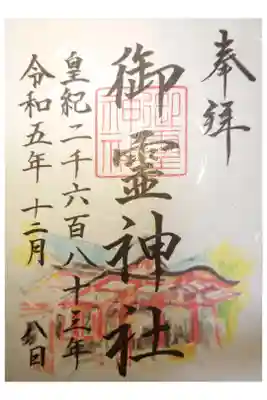 奉拝
御霊神社
皇紀二千六百八十三年
令和五年 十二月 八日